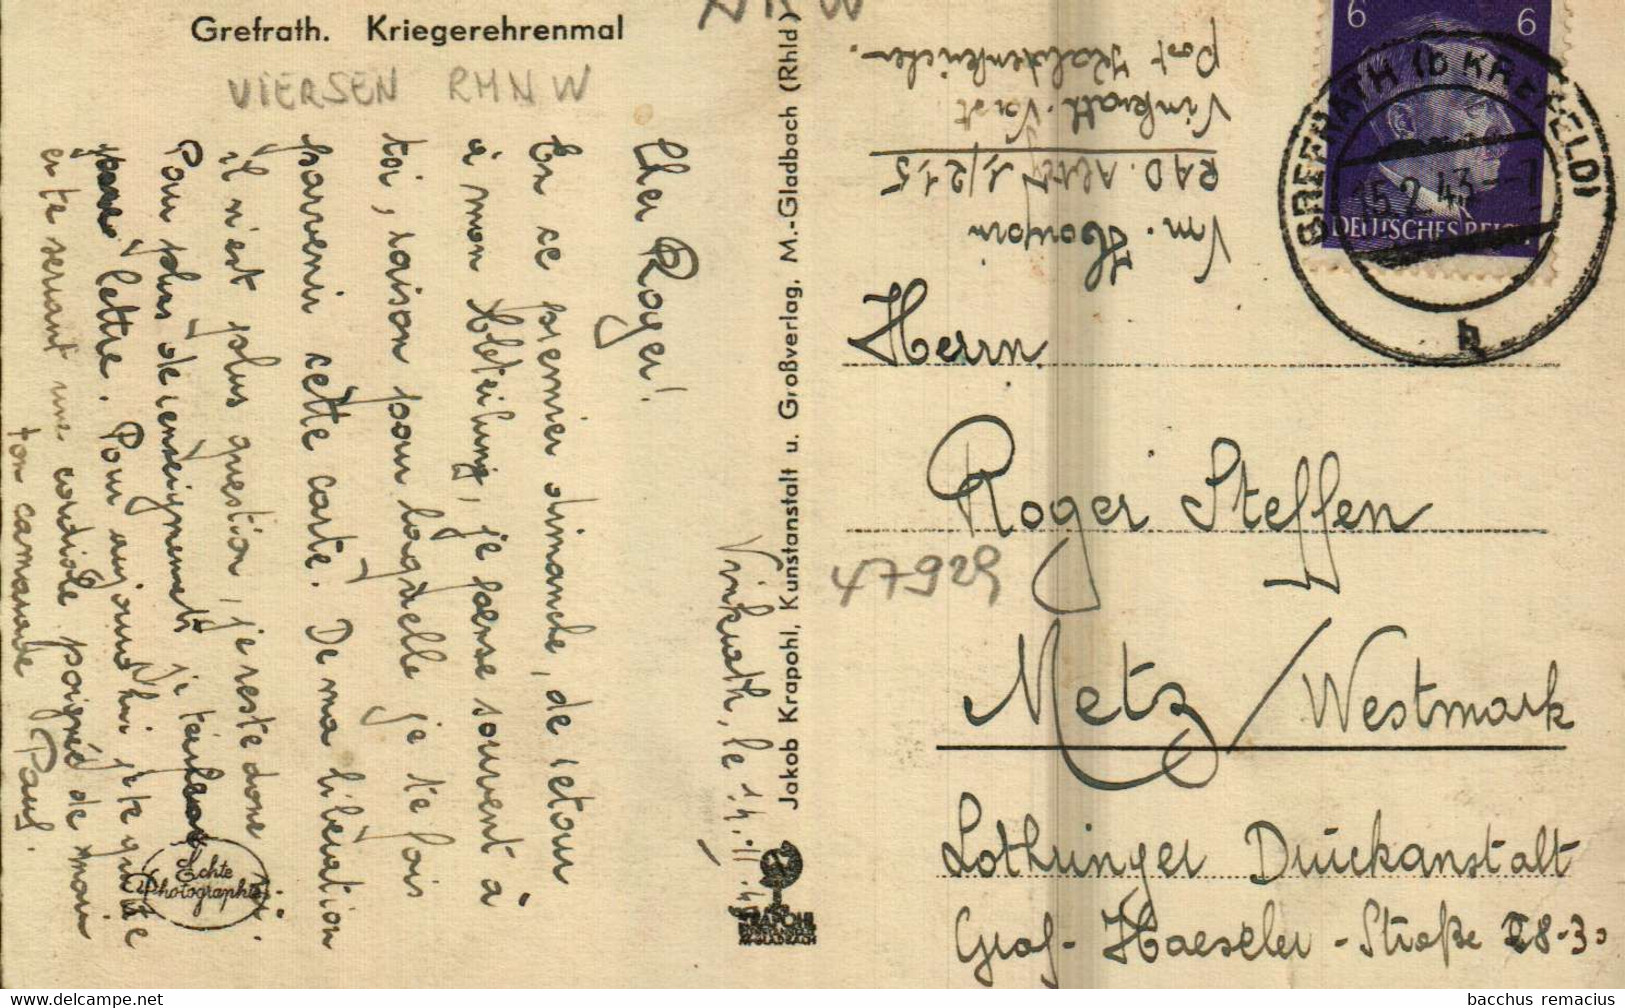 Grefrath. Kriegerehrenmal
VIERSEN RMNW
NRW
Vinkrath, le 14.II.43
Cher Roger!
En ce premier dimanche, de retour
à mon Abteilung, je pense souvent à
toi, raison pour laquelle je te fais
parvenir cette carte. De ma libération
il n'est plus question, je reste donc ici.
Pour plus de renseignements je
lettre. Pour aujourd'hui je te quitte
en te serrant une cordiale poignée de main
ton camarade Paul.
Echte
Photographie
Jakob Krapohl, Kunstanstalt u. Großverlag, M.-Gladbach (Rhld)
KRAPOHL
M.GLADBACH
Vm. Houpin
RAD. Abt. 1/215
Vinkrath-Vorst
Post Kaldenkirchen
6 6
DEUTSCHES REICH
GREFRATH (b KREFELD)
15.2.43--7
b
Herrn
Roger Steffen
47929
Metz/Westmark
Lothringer Druckanstalt
Graf-Haeseler-Straße 28-30
bacchus remacius